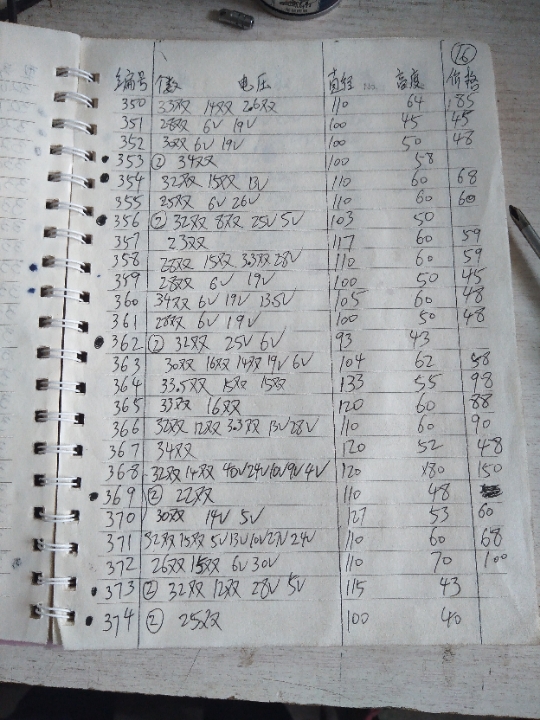 16
编号 个数 电压 直径 高度 价格
350 33双 14双 26双 110 64 185
351 28双 6V 19V 100 45 45
352 30双 6V 19V 100 50 48
353 ② 34双 100 58
354 32双 15双 13V 110 60 68
355 25双 6V 26V 110 60 60
356 ② 32双 8双 25V 5V 103 50
357 23双 117 60 59
358 22双 15双 3.3双 28V 110 60 59
359 28双 6V 19V 100 50 45
360 34双 6V 19V 13.5V 105 60 48
361 28双 6V 19V 100 50 48
362 ② 32双 25V 6V 93 43
363 30双 16双 14双 19V 6V 104 62 58
364 33.5双 15双 15双 133 55 98
365 33双 16双 120 60 88
366 32双 12双 3.3双 13V 28V 110 60 90
367 34双 120 52 48
368 32双 14双 40V 24V 10V 9V 4V 120 80 150
369 ② 22双 110 48
370 30双 14V 5V 127 53 60
371 32双 15双 5V 13V 10V 27V 24V 110 60 68
372 26双 15双 6V 30V 110 70 100
373 ② 32双 12双 28V 5V 115 43
374 ② 25双 100 40